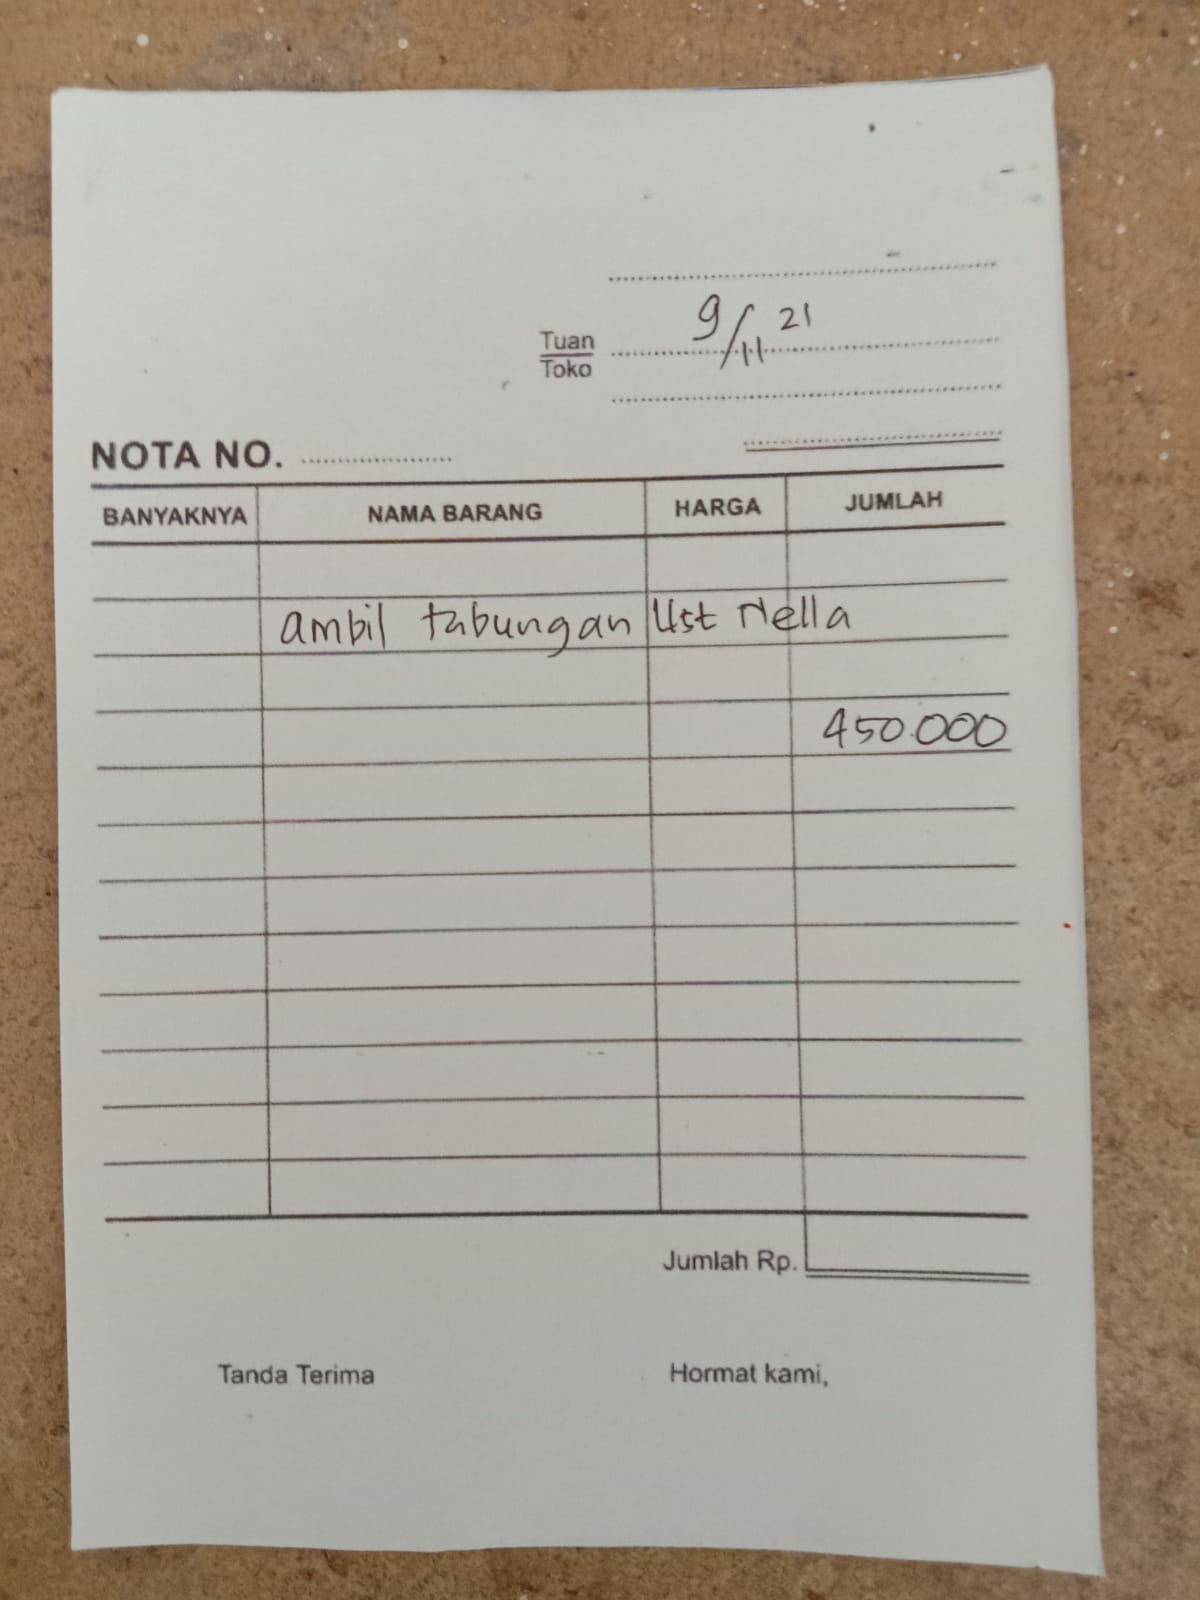 9/11 21
Tuan
Toko
NOTA NO.
BANYAKNYA NAMA BARANG HARGA JUMLAH
ambil tabungan Ust Nella
450.000
Jumlah Rp.
Tanda Terima Hormat kami,